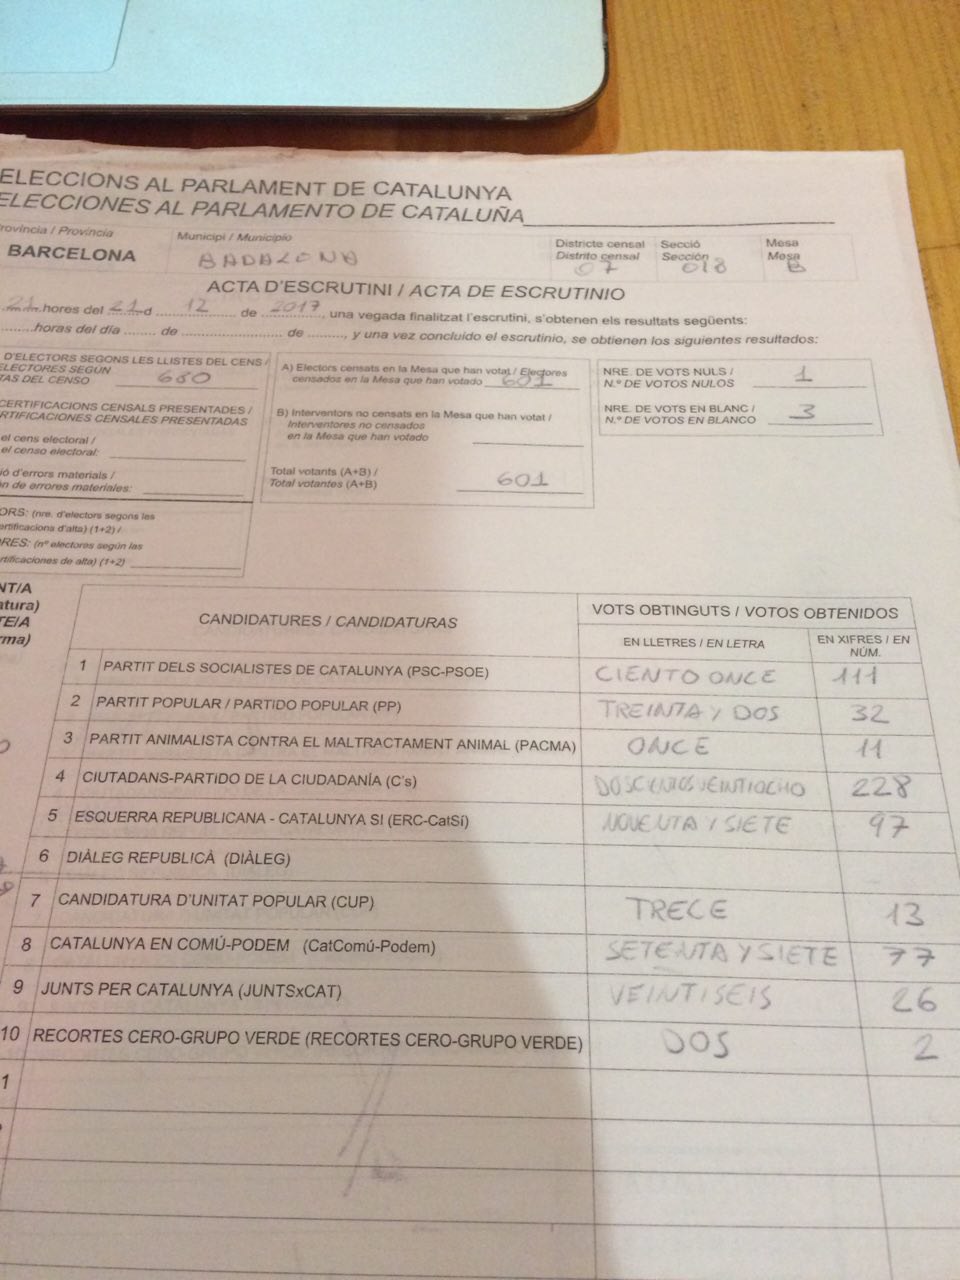 ELECCIONS AL PARLAMENT DE CATALUNYA
ELECCIONES AL PARLAMENTO DE CATALUÑA
rovíncia / Provincia Municipi / Municipio Districte censal Secció Mesa
BARCELONA BADALONA Distrito censal 07 Sección 018 Mesa B
ACTA D'ESCRUTINI / ACTA DE ESCRUTINIO
21 hores del 21 d 12 de 2017, una vegada finalitzat l'escrutini, s'obtenen els resultats següents:
horas del día de de , y una vez concluido el escrutinio, se obtienen los siguientes resultados:
D'ELECTORS SEGONS LES LLISTES DEL CENS /
ELECTORES SEGÚN
TAS DEL CENSO 680
CERTIFICACIONS CENSALS PRESENTADES /
RTIFICACIONES CENSALES PRESENTADAS
el cens electoral /
el censo electoral:
ió d'errors materials /
ón de errores materiales:
ORS: (nre. d'electors segons les
ertificacions d'alta) (1+2) /
RES: (nº electores según las
rtificaciones de alta) (1+2)
A) Electors censats en la Mesa que han votat / Electores
censados en la Mesa que han votado 601
B) Interventors no censats en la Mesa que han votat /
Interventores no censados
en la Mesa que han votado
Total votants (A+B) /
Total votantes (A+B) 601
NRE. DE VOTS NULS /
N.º DE VOTOS NULOS 1
NRE. DE VOTS EN BLANC /
N.º DE VOTOS EN BLANCO 3
NT/A
atura)
TE/A
rma)
CANDIDATURES / CANDIDATURAS VOTS OBTINGUTS / VOTOS OBTENIDOS
EN LLETRES / EN LETRA EN XIFRES / EN NÚM.
1 PARTIT DELS SOCIALISTES DE CATALUNYA (PSC-PSOE) CIENTO ONCE 111
2 PARTIT POPULAR / PARTIDO POPULAR (PP) TREINTA Y DOS 32
3 PARTIT ANIMALISTA CONTRA EL MALTRACTAMENT ANIMAL (PACMA) ONCE 11
4 CIUTADANS-PARTIDO DE LA CIUDADANÍA (C's) DOSCIENTOS VEINTIOCHO 228
5 ESQUERRA REPUBLICANA - CATALUNYA SI (ERC-CatSí) NOVENTA Y SIETE 97
6 DIÀLEG REPUBLICÀ (DIÀLEG)
7 CANDIDATURA D'UNITAT POPULAR (CUP) TRECE 13
8 CATALUNYA EN COMÚ-PODEM (CatComú-Podem) SETENTA Y SIETE 77
9 JUNTS PER CATALUNYA (JUNTSxCAT) VEINTISEIS 26
10 RECORTES CERO-GRUPO VERDE (RECORTES CERO-GRUPO VERDE) DOS 2
1